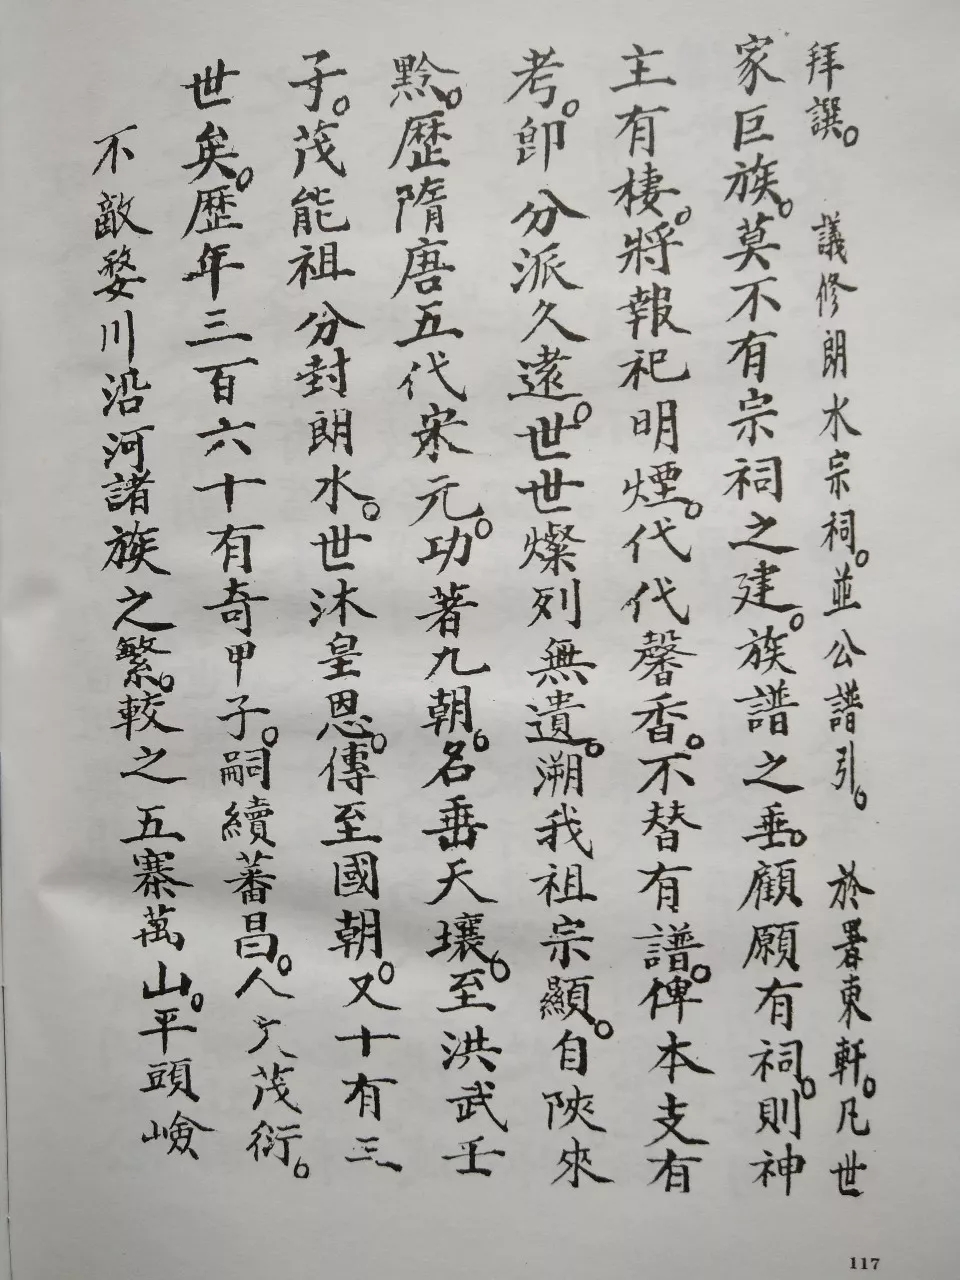 拜譔。 議修朗水宗祠。並公譜引。 於署東軒。凡世
家巨族。莫不有宗祠之建。族譜之垂。顧願有祠。則神
主有棲。將報祀明煙。代代馨香。不替有譜。俾本支有
考。卽分派久遠。世世燦列無遺。溯我祖宗顯。自陝來
黔。歷隋唐五代宋元。功著九朝。名垂天壤。至洪武壬
子。茂能祖分封朗水。世沐皇恩。傳至國朝。又十有三
世矣。歷年三百六十有奇甲子。嗣續蕃昌。人文茂衍。
不敵婺川沿河諸族之繁。較之五寨萬山。平頭嶮
117